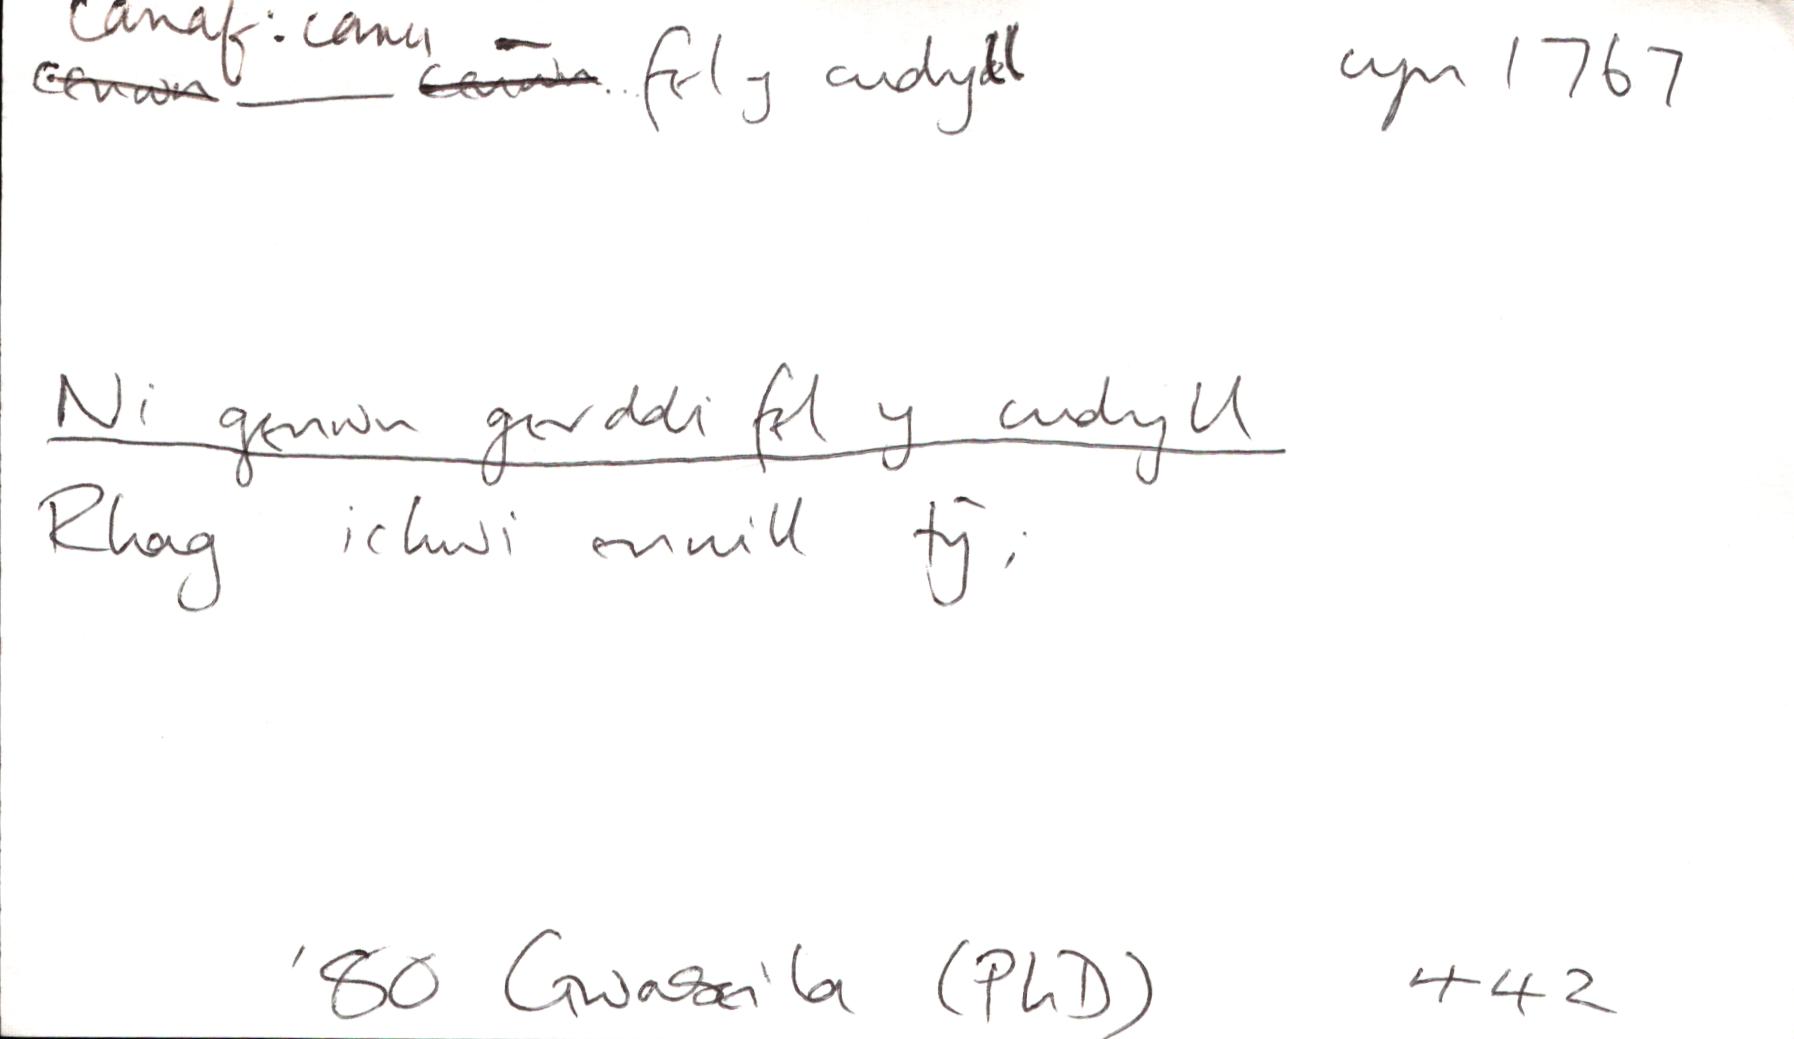 canaf: canu –
cenwn ___ cenwn .. fel y cudyll cyn 1767
Ni genwn gerddi fel y cudyll
Rhag ichwi ennill tŷ;
'80 Gwaseila (PhD) 442